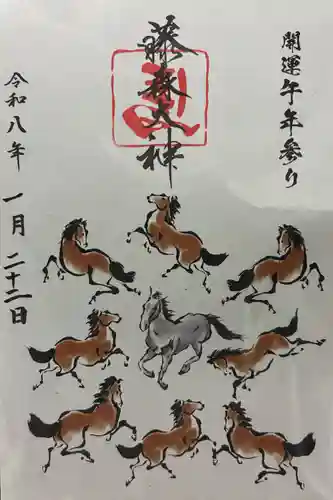 開運午年参り
藤森大神
令和八年
一月二十二日